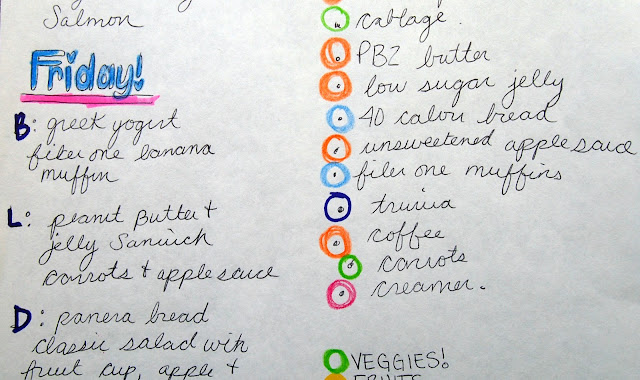 Salmon
Friday!
B: greek yogurt
fiber one banana
muffin
L: peanut Butter +
jelly
carrots + applesauce
D: panera bread
classic salad with
fruit cup, apple +
cabbage.
PB2 butter
low sugar jelly
40 calori bread
unsweetened applesauce
fiber one muffins
truvia
coffee
carrots
creamer.
VEGGIES!
FRUITS